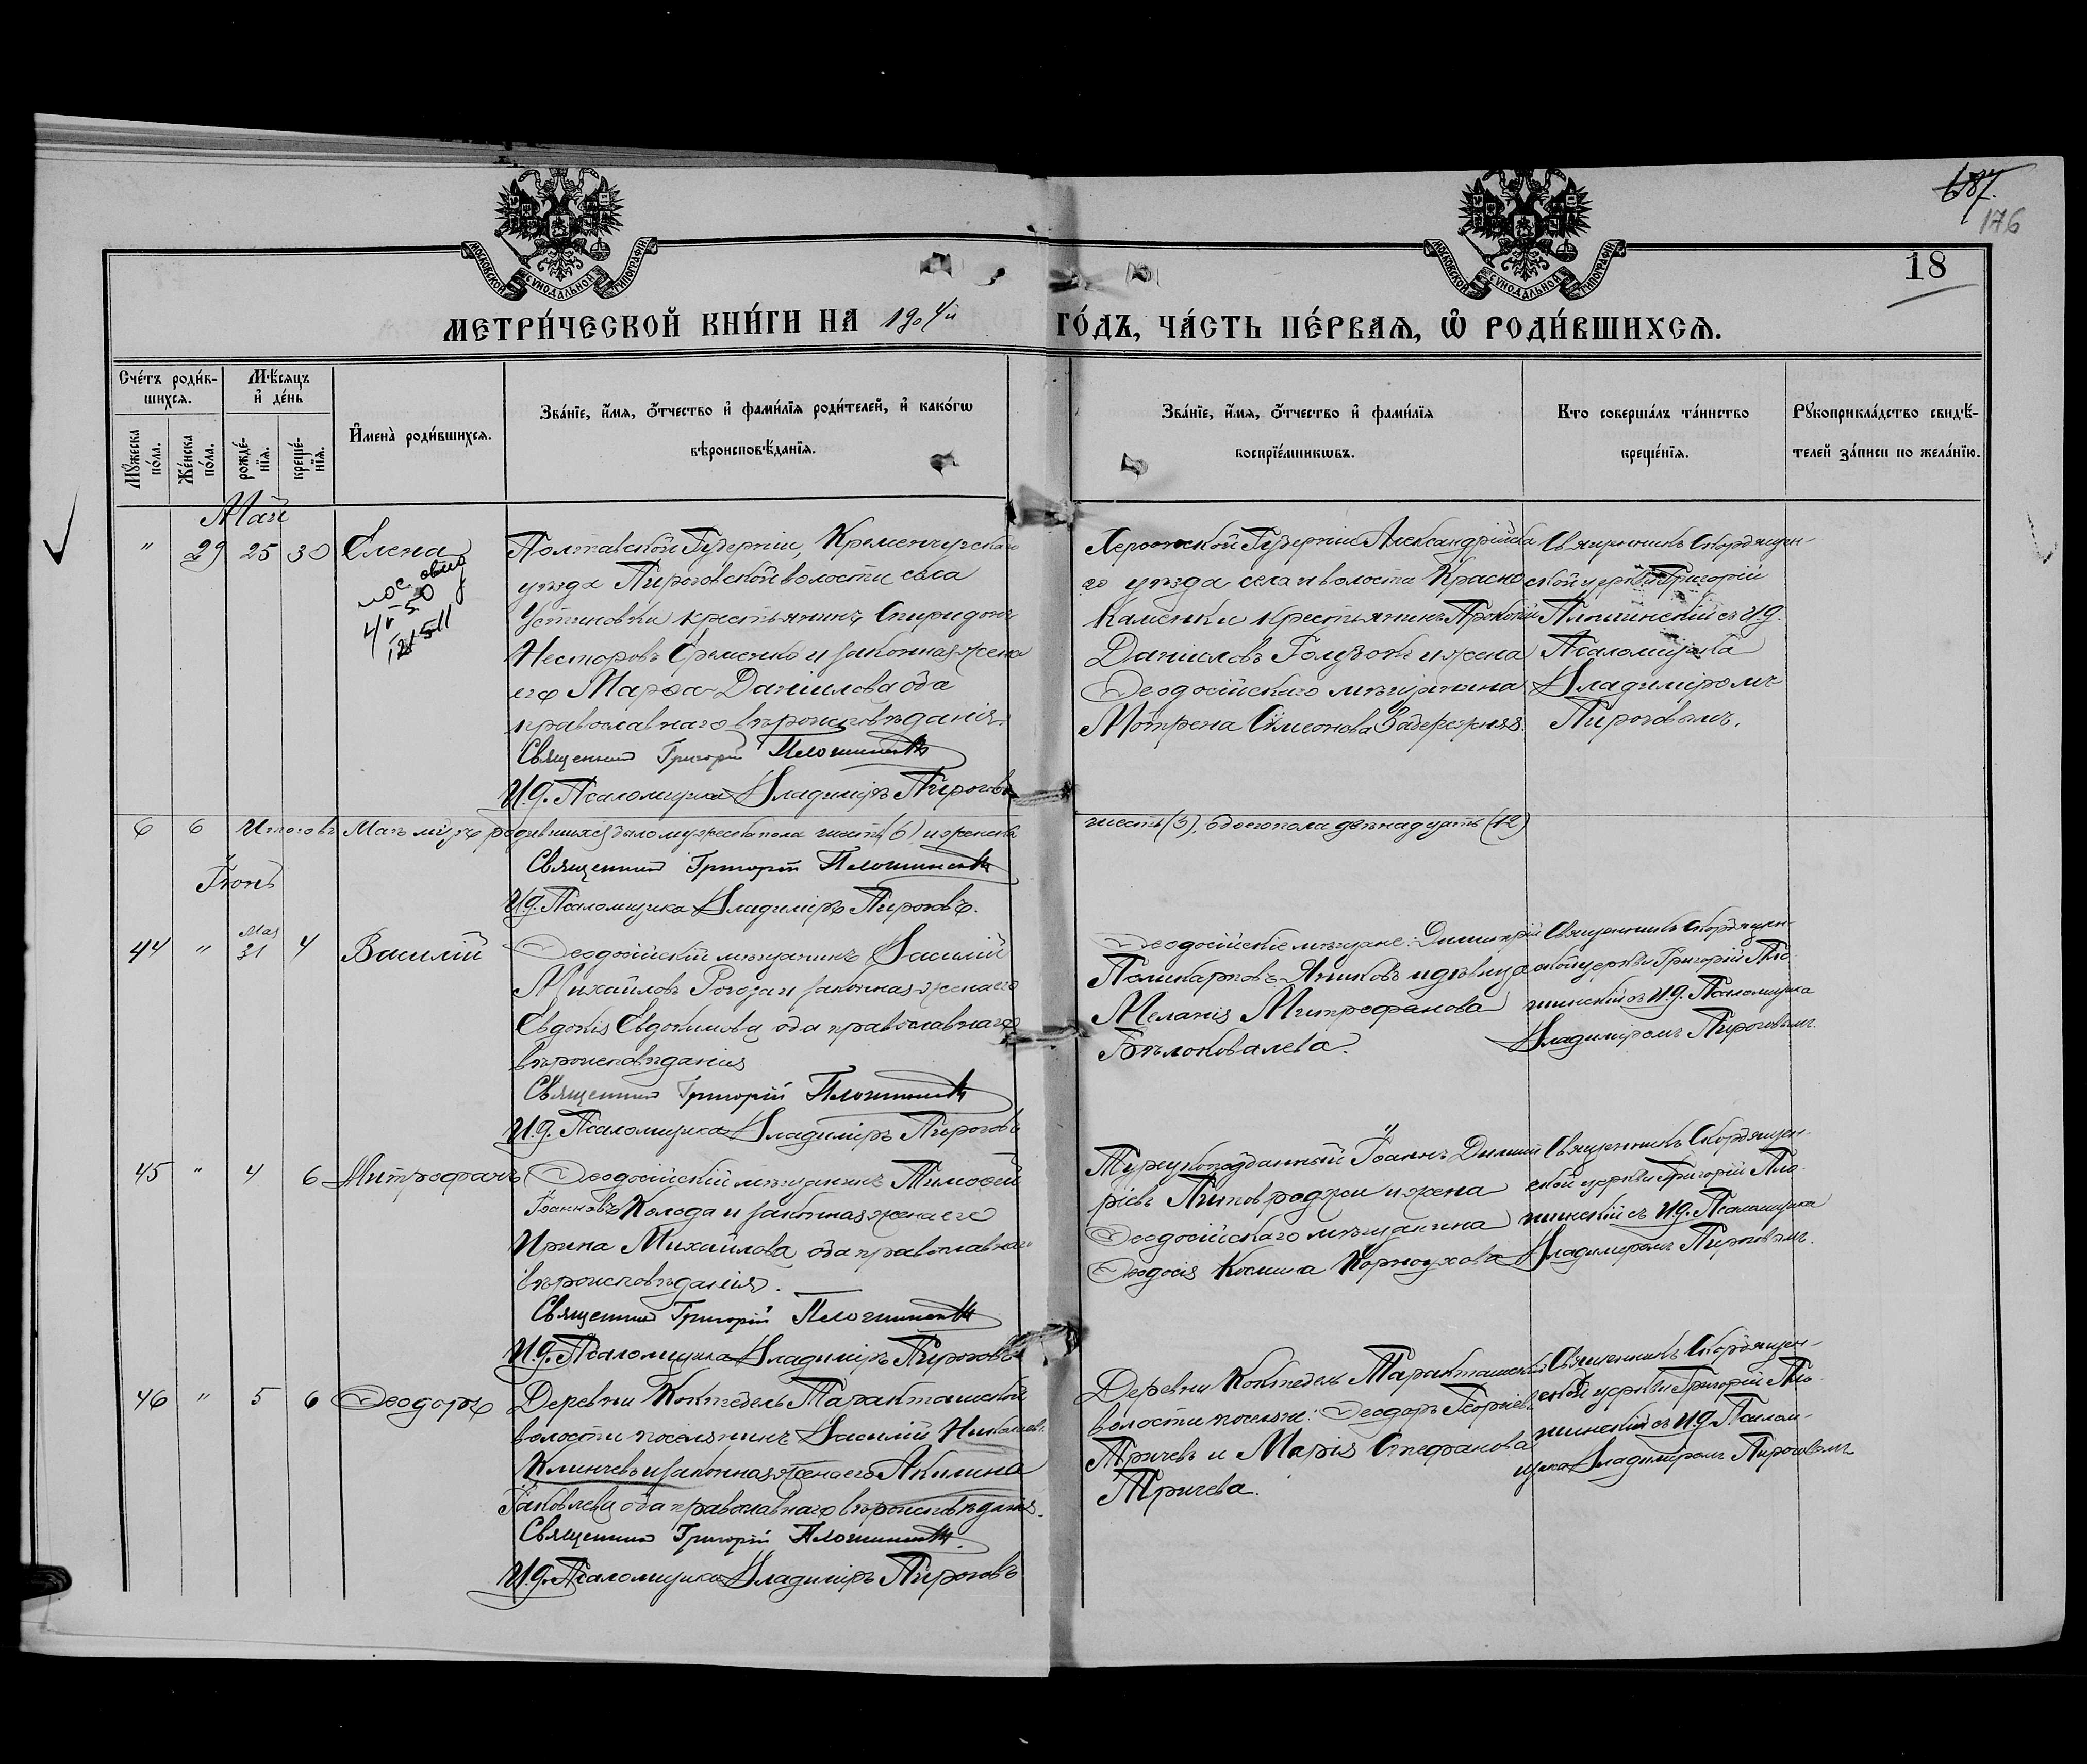 687.
176
18
МОСКОВСКОЙ СУНОДАЛЬНОЙ ТИПОГРАФІИ
МОСКОВСКОЙ СУНОДАЛЬНОЙ ТИПОГРАФІИ
МЕТРИ́ЧЕСКОЙ КНИ́ГИ НА 1904й ГО́ДЪ, ЧА́СТЬ ПЕ́РВАѦ, Ѡ҆ РОДИ́ВШИХСѦ.
Сче́тъ роди́вшихсѧ.
Мꙋ́жеска по́ла.
Же́нска по́ла.
Мѣ́сяцъ и҆ де́нь
рожде́нїѧ.
креще́нїѧ.
И҆мена̀ роди́вшихсѧ.
Зва́нїе, и҆́мѧ, ѻ҆́тчество и҆ фами́лїѧ роди́телей, и҆ како́гѡ
вѣроисповѣ́данїѧ.
Зва́нїе, и҆́мѧ, ѻ҆́тчество и҆ фами́лїѧ
воспрїе́мникѡвъ.
Кто соверша́лъ та́инство
креще́нїѧ.
Рꙋкоприкла́дство свидѣ́-
телей за́писи по жела́нїю.
Май
" 29 25 30 Елена
Полтавской Губерніи, Кременчугскаго
уѣзда Пироговской волости села
Устиновки крестьянинъ Спиридонъ
Несторовъ Еременко и законная жена
его Марфа Даніилова оба
православнаго вѣроисповѣданія.
Священникъ Григорій Плошинскій
И.д. Псаломщика Владиміръ Пироговъ
Херсонской Губерніи Александрійска
го уѣзда села и волости Красно
Каменки крестьянинъ Прокопій
Даніиловъ Голубовъ и жена
Ѳеодосійскаго мѣщанина
Мотрена Симеонова
Священникъ Скорбящен-
ской церкви Григорій
Плошинскій съ И.д.
Псаломщика
Владиміромъ
Пироговымъ.
6 6 Итого въ Маѣ мѣсяцѣ родившихся было мужеска пола шесть (6) и женска
шесть (6), обоего пола двѣнадцать (12)
Священникъ Григорій Плошинскій
И.д. Псаломщика Владиміръ Пироговъ.
Іюнь
44 " Мая 31 4 Василій
Ѳеодосійскій мѣщанинъ Василій
Михайловъ Рогоза и законная жена его
Евдокія Евдокимова оба православнаго
вѣроисповѣданія
Священникъ Григорій Плошинскій
И.д. Псаломщика Владиміръ Пироговъ
Ѳеодосійскіе мѣщане: Димитрій
Поликарповъ Яниковъ и дѣвица
Меланія Митрофанова
Бѣлоковалева.
Священникъ Скорбящен-
ской церкви Григорій Пло-
шинскій съ И.д. Псаломщика
Владиміромъ Пироговымъ.
45 " 4 6 Митрофанъ
Ѳеодосійскій мѣщанинъ Тимофей
Іоанновъ Колода и законная жена его
Ирина Михайлова, оба православнаго
вѣроисповѣданія.
Священникъ Григорій Плошинскій
И.д. Псаломщика Владиміръ Пироговъ
Турецкоподданный Іоаннъ Димит
ріевъ и жена
Ѳеодосійскаго мѣщанина
Ѳеодосія Космина Корноухова
Священникъ Скорбящен-
ской церкви Григорій Пло-
шинскій съ И.д. Псаломщика
Владиміромъ Пироговымъ.
46 " 5 6 Ѳеодоръ
Деревни Коктебель Таракташской
волости поселянинъ Василій Николаевъ
Клинчевъ и законная жена его Акилина
Іаковлева оба православнаго вѣроисповѣданія.
Священникъ Григорій Плошинскій.
И.д. Псаломщика Владиміръ Пироговъ
Деревни Коктебель Таракташской
волости поселяне: Ѳеодоръ Георгіевъ
Тричевъ и Марія Стефанова
Тричева.
Священникъ Скорбящен-
ской церкви Григорій Пло-
шинскій съ И.д. Псалом-
щика Владиміромъ Пироговымъ